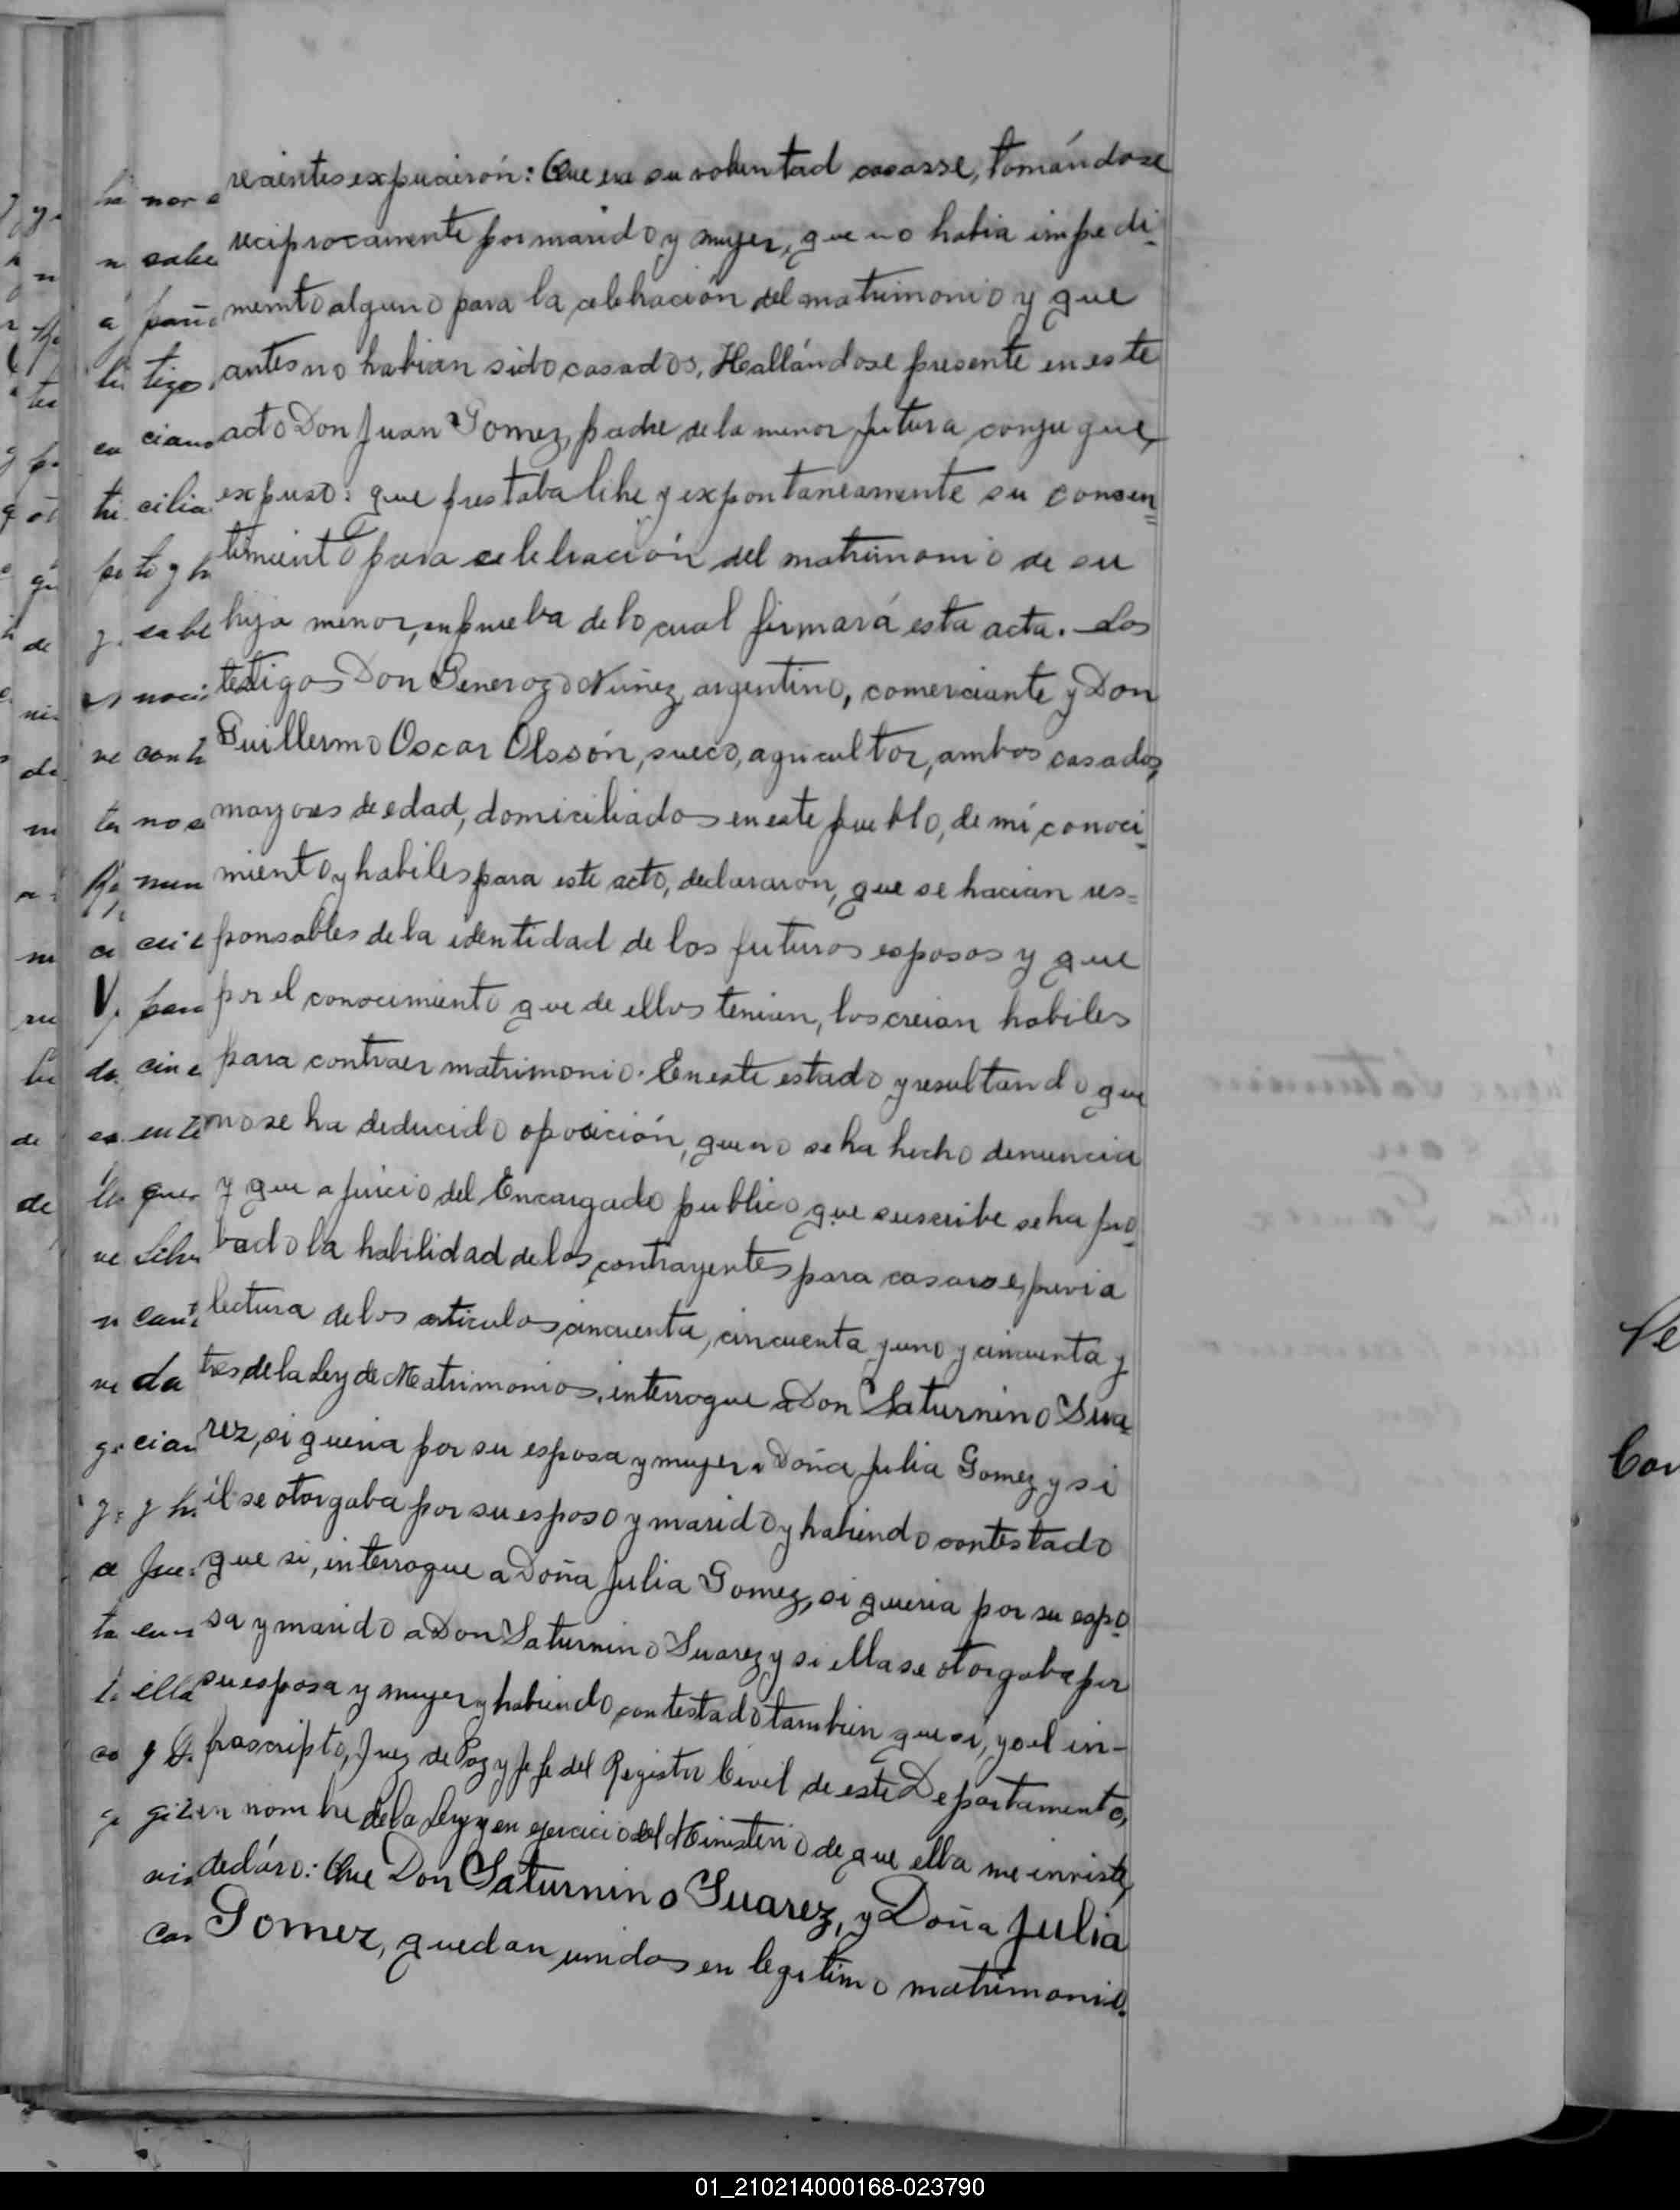 recientes expucieron: Que era su voluntad casarse, tomándose
reciprocamente por marido y mujer, que no habia impedi-
memto alguno para la celebración del matrimonio y que
antes no habian sido casados. Hallándose presente en este
acto Don Juan Gomez, padre de la menor futura conjugue,
expuso: que prestaba libre y expontaneamente su consen=
timiento para celebración del matrimonio de su
hija menor, en prueba de lo cual firmará esta acta. Los
testigos Don Generozo Nuñez, argentino, comerciante y Don
Guillermo Oscar Olssón, sueco, agricultor, ambos casados,
mayores de edad, domiciliados en este pueblo, de mi conoci-
miento y habiles para este acto, declararon, que se hacian res=
ponsables de la identidad de los futuros esposos y que
por el conocimiento que de ellos tenian, los creian habiles
para contraer matrimonio. En este estado y resultando que
no se ha deducido oposición, que no se ha hecho denuncia
y que a juicio del Encargado publico que suscribe se ha pro-
bado la habilidad de los contrayentes para casarse, previa
lectura de los articulos cincuenta, cincuenta y uno y cincuenta y
tres de la Ley de Matrimonios, interrogue a Don Saturnino Sua-
rez, si queria por su esposa y mujer a Doña Julia Gomez y si
él se otorgaba por su esposo y marido y habiendo contestado
que si, interrogue a Doña Julia Gomez, si queria por su espo-
so y marido a Don Saturnino Suarez y si ella se otorgaba por
su esposa y mujer y habiendo contestado tambien que si, yo el in-
frascripto, Juez de Paz y Jefe del Registro Civil de este Departamento,
en nombre de la Ley y en ejercicio del Ministerio de que ella me inviste,
decláro: Que Don Saturnino Suarez, y Doña Julia
Gomez, quedan unidos en legitimo matrimonio.
01_210214000168-023790